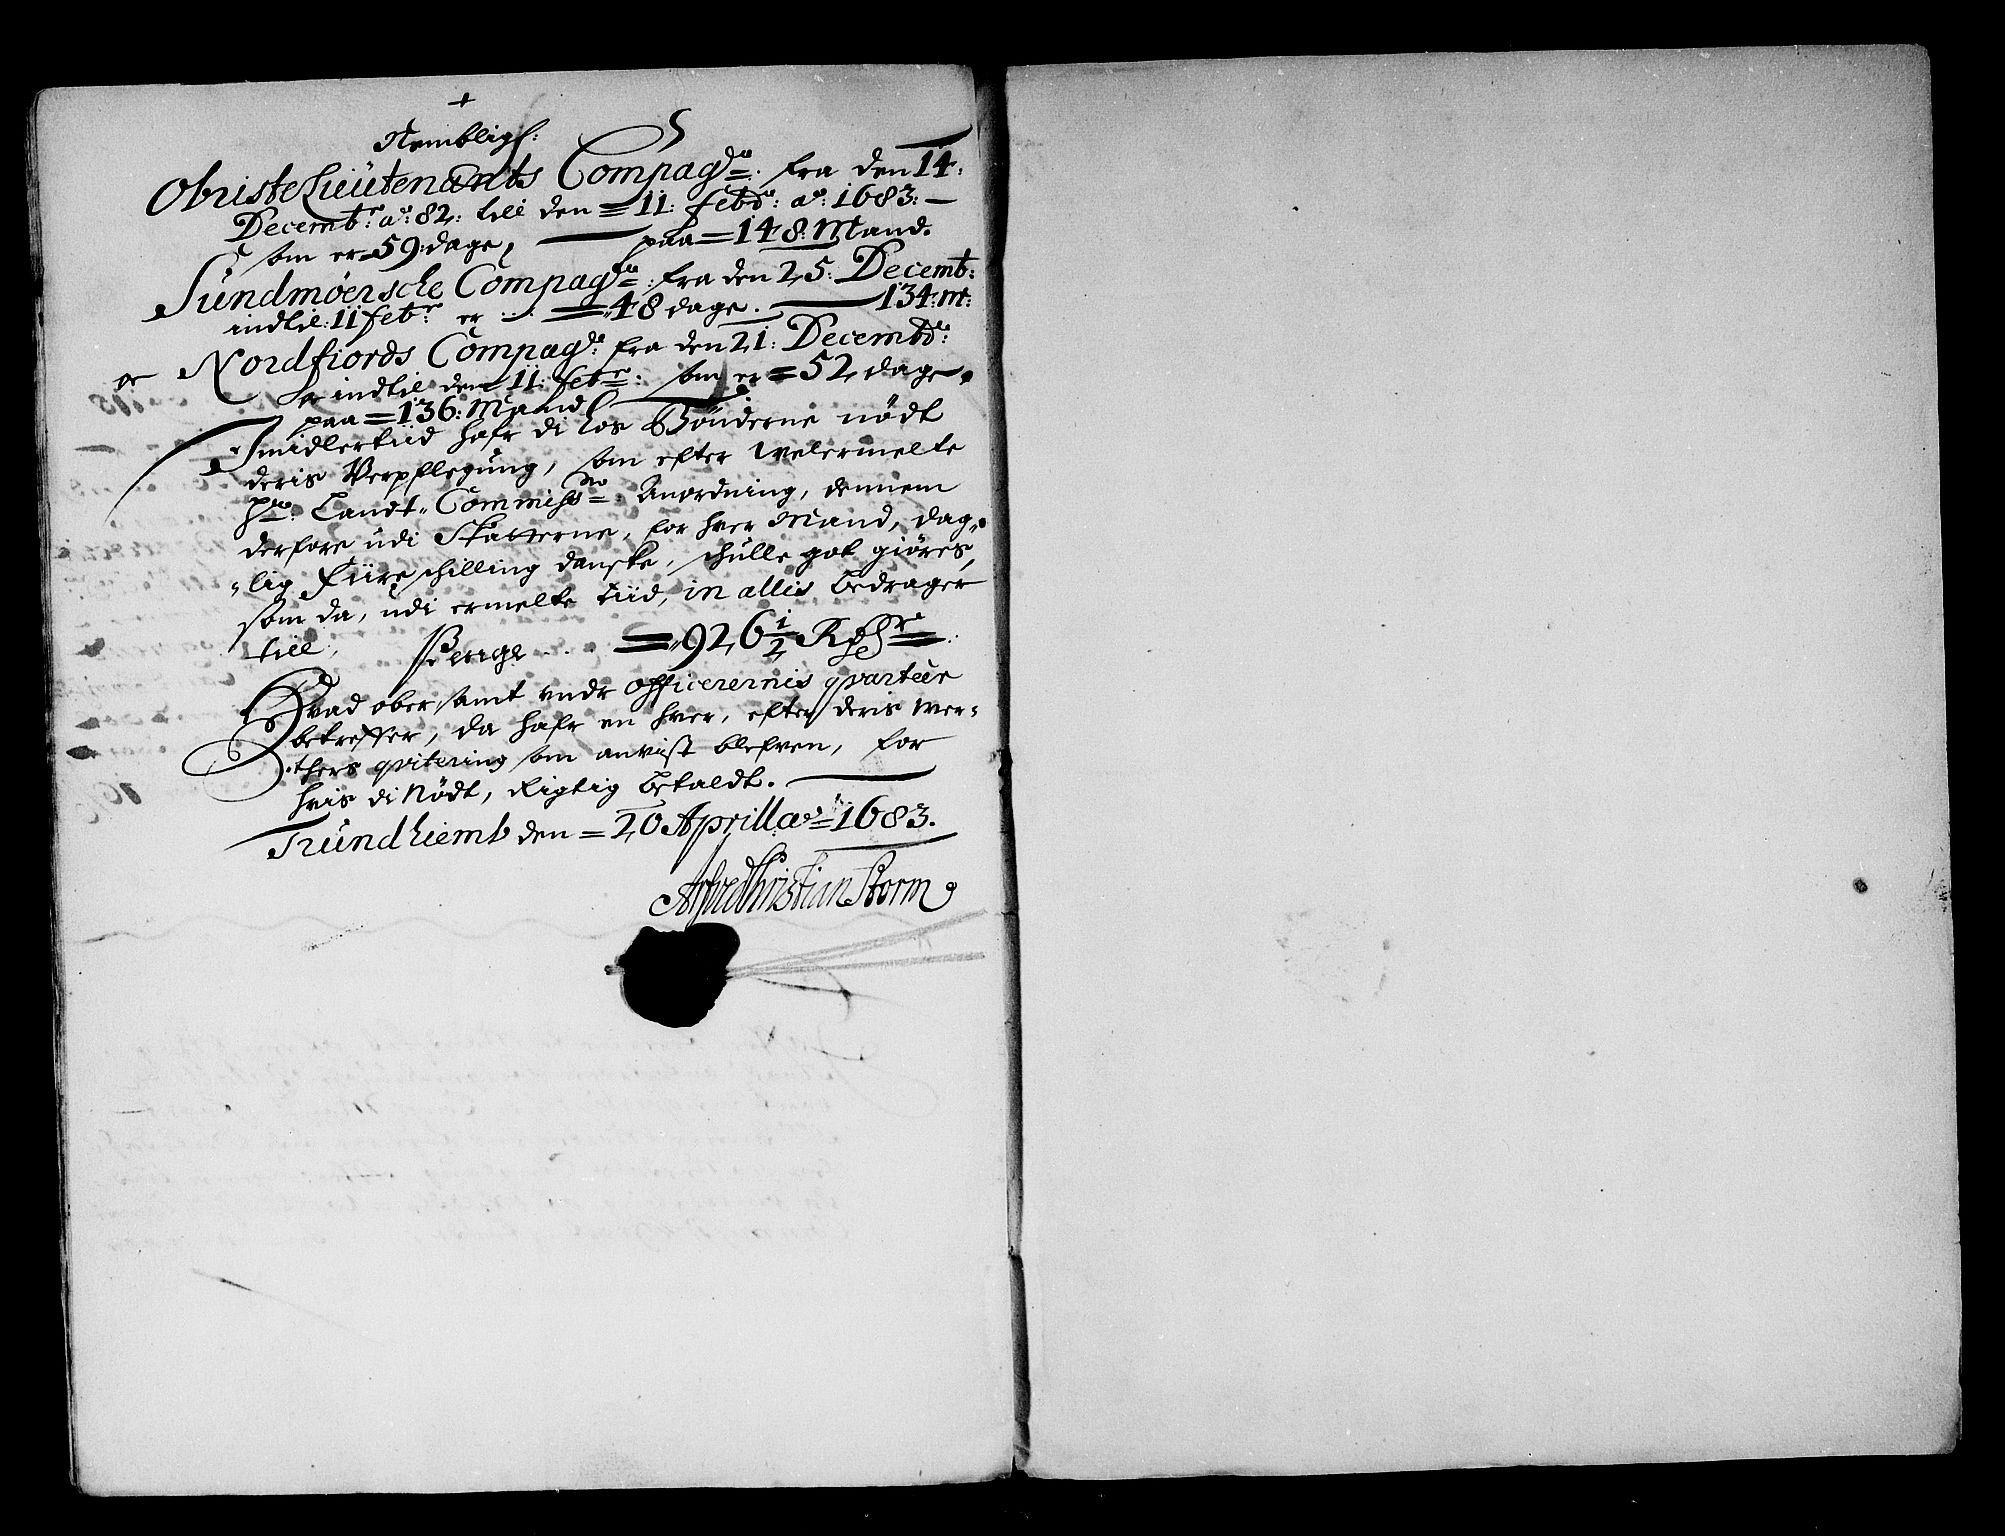 Nembligh:
Obriste Lieütenants Compagie: fra den 14:
Decembr: ao: 82: till den 11: febr: ao: 1683:
som er 59: dage, paa 148: Mand.
Sündmöersche Compagie: fra den 25: Decemb:
indtil: 11 febr: er ... 48 dage. 134: M:
oc Nordfiords Compagie: fra den 21: Decembr:
indtil den 11: febr: som er 52 dage.
paa 136: Mand
Imidlertiid hafr di hos Bönderne nödt
deris Verpflegüng, som efter welermelte
Hr: Landt Commiss: Anordning, dennem
derfore üdi Skatterne, for hver Mand, dag„
„lig Fiire schilling danske, schülle got giöres,
som da, udi ermelte tiid, in allis bedrager
till, Penge ... 926 1/2 Rdr
Hvad ober samt under Officerernis qvarteer
betreffer, da hafr en hver, efter deris wer-
thers qvitering som anvist blefven, for
hvis di Nödt, Rigtig betaldt.
Tründhiemb den 20 Aprill ao 1683.
Christian Storm